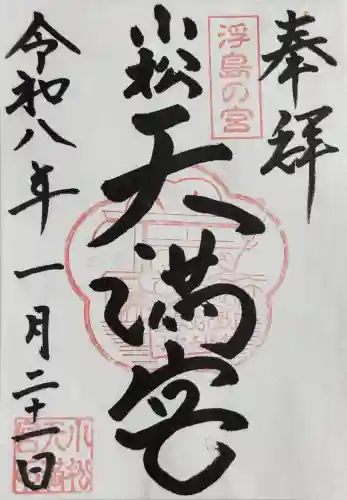 奉拝
浮島の宮
小松天満宮
令和八年一月二十一日
小松天満宮